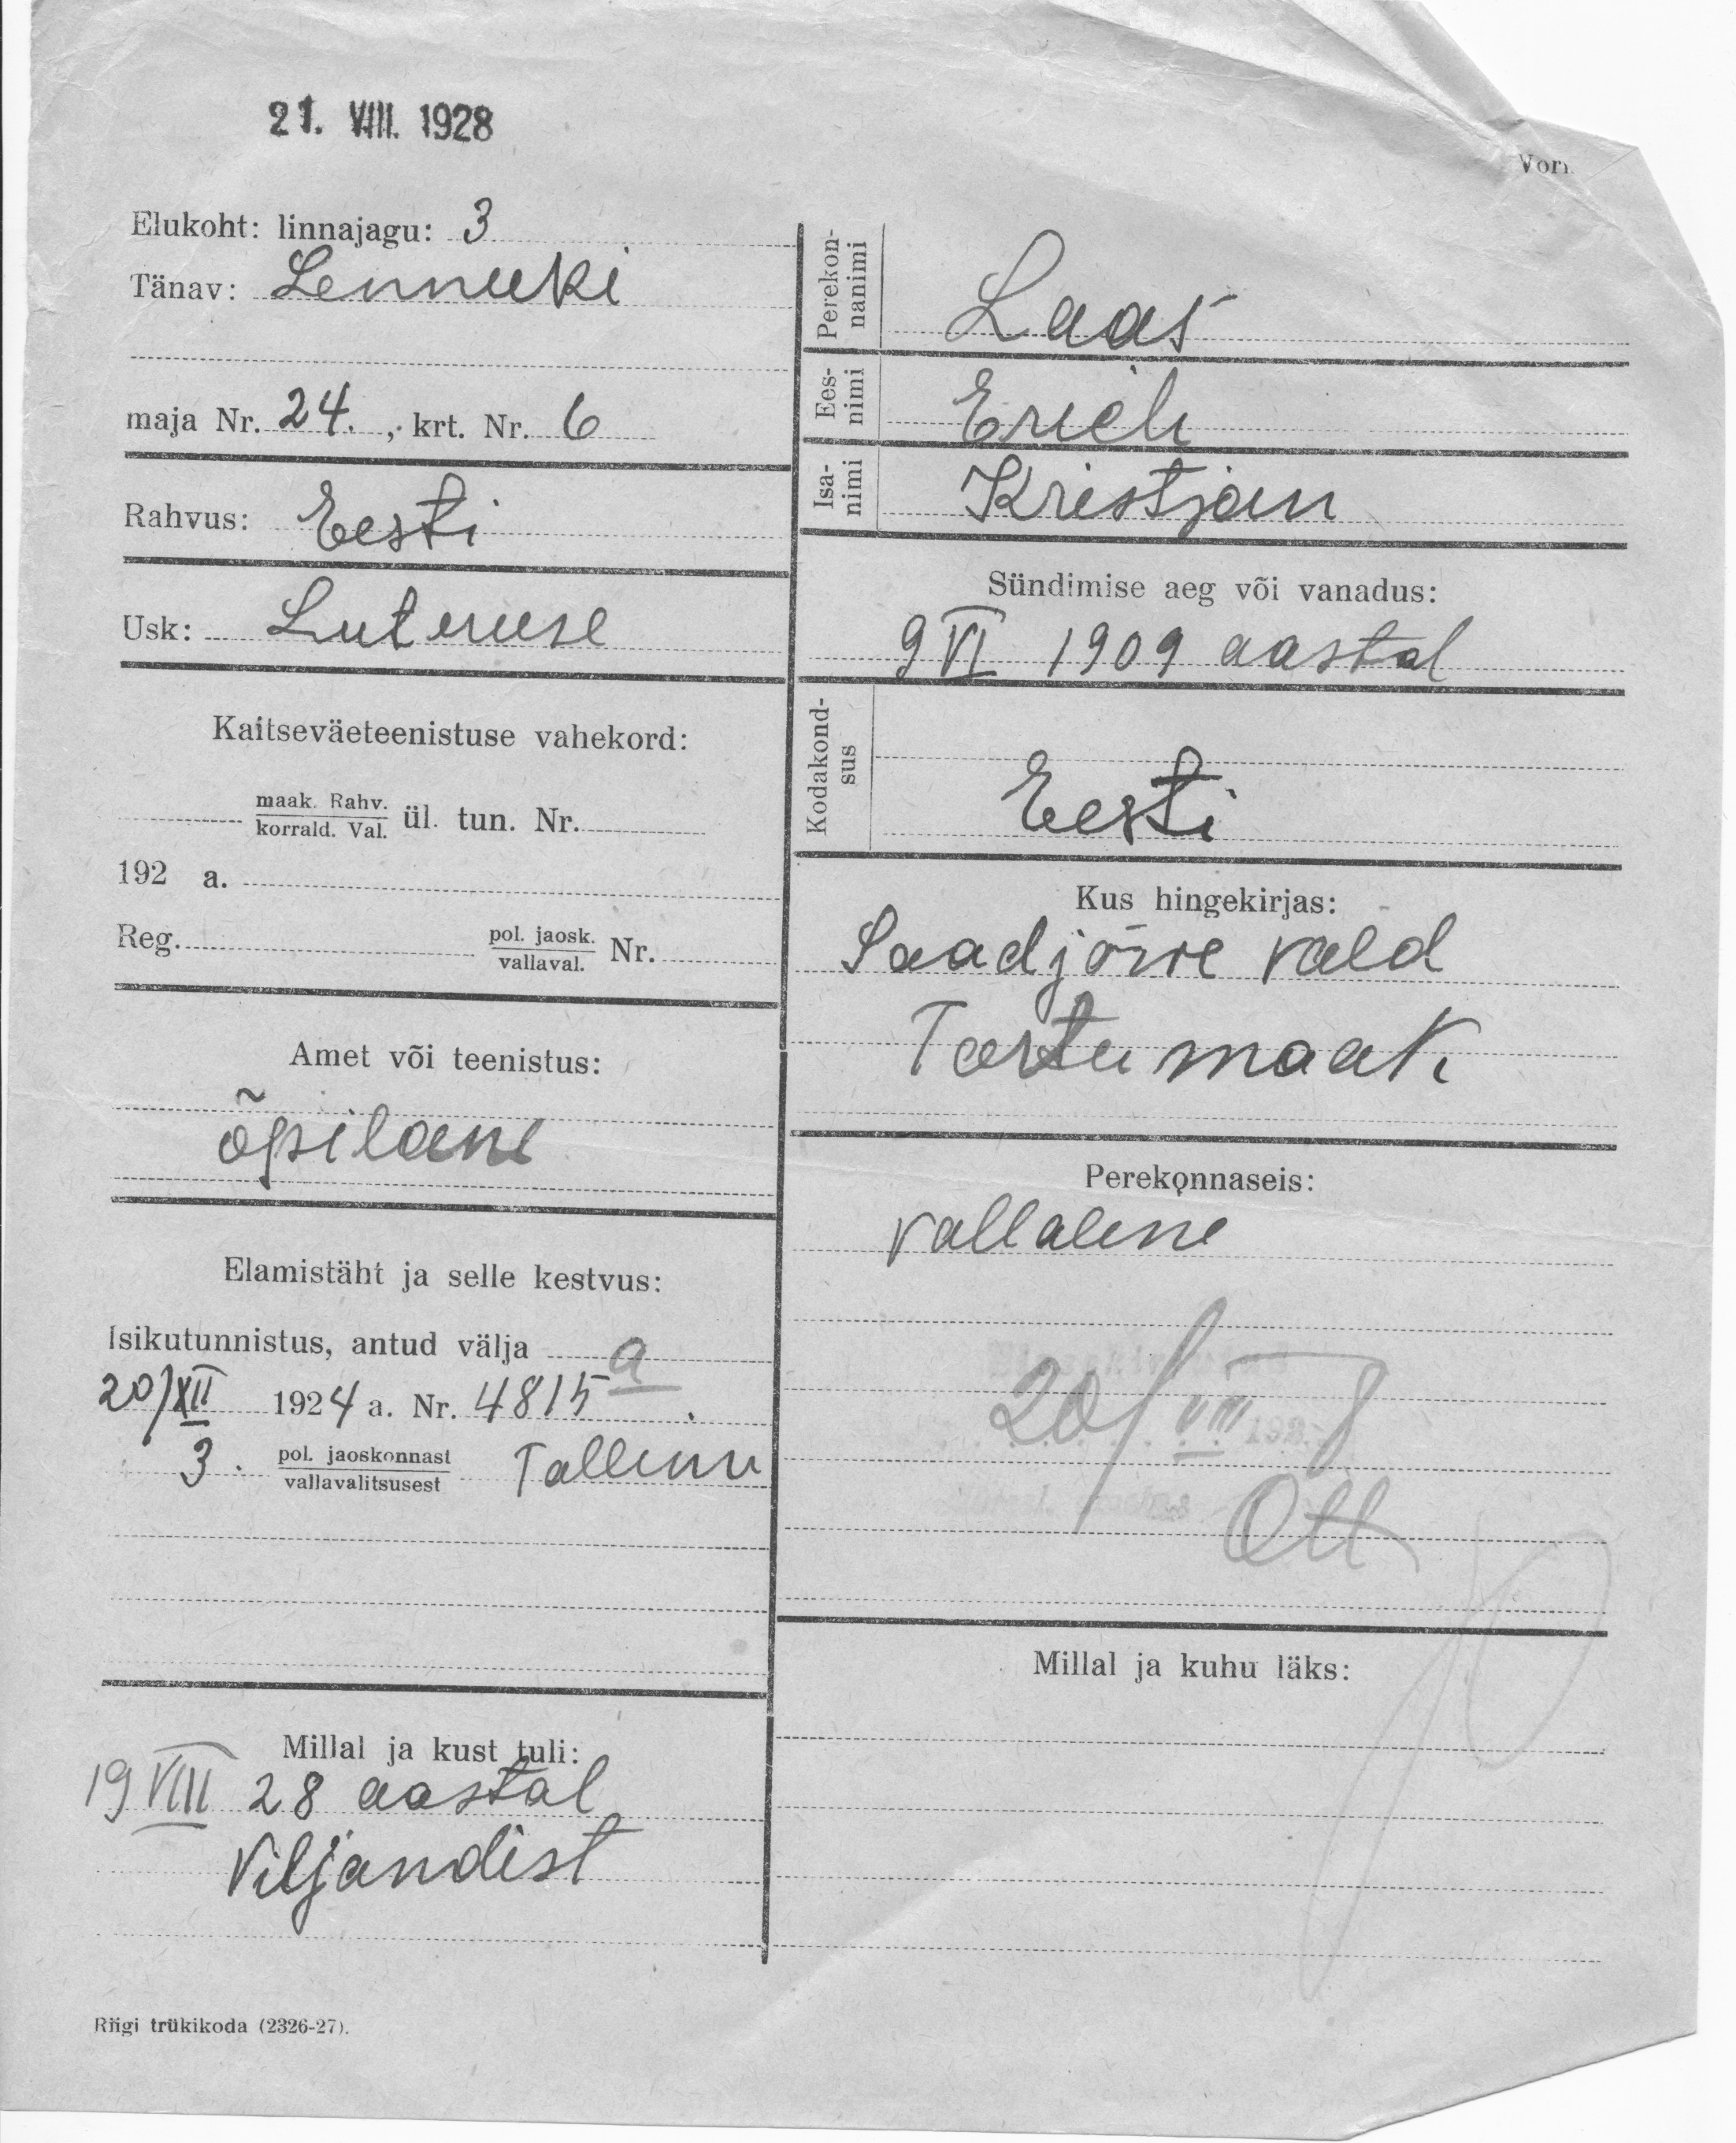 21. VIII. 1928
Elukoht: linnajagu: 3
Tänav: Lennuki
maja Nr. 24. , krt. Nr. 6
Rahvus: Eesti
Usk: Luteruse
Kaitseväeteenistuse vahekord:
maak. Rahv.
korrald. Val. ül. tun. Nr.
192 a.
Reg. pol. jaosk.
vallaval. Nr.
Amet või teenistus:
õpilane
Elamistäht ja selle kestvus:
Isikutunnistus, antud välja a
20/XII 1924 a. Nr. 4815
3. pol. jaoskonnast
vallavalitsusest Tallinn
Millal ja kust tuli:
19 VIII 28 aastal
Viljandist
Riigi trükikoda (2326-27).
Perekon-
nanimi
Laas
Ees-
nimi
Erich
Isa-
nimi
Kristjan
Sündimise aeg või vanadus:
9 VI 1909 aastal
Kodakond-
sus
Eesti
Kus hingekirjas:
Saadjärve vald
Tartumaak.
Perekonnaseis:
vallaline
20/VIII 8
Ott
Millal ja kuhu läks: